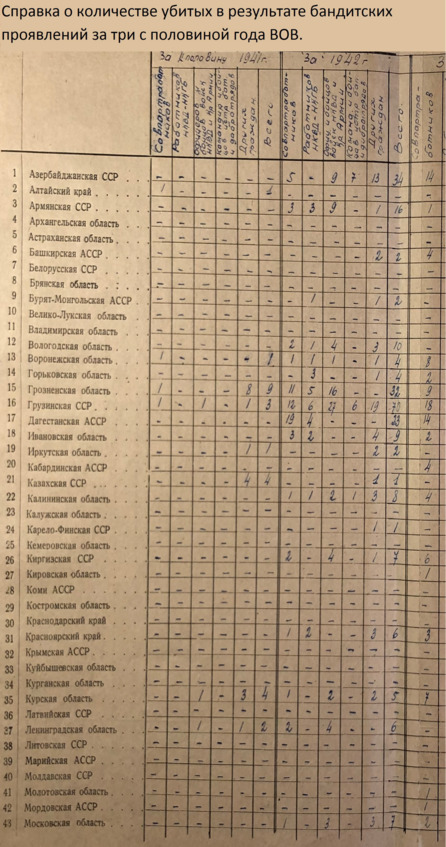 Справка о количестве убитых в результате бандитских
проявлений за три с половиной года ВОВ.
За II половину 1941г. За 1942г. З
Совпартработников Работников НКВД-НКГБ Других граждан Всего Совпартработников Работников НКВД-НКГБ Других граждан Всего Совпартработников
1 Азербайджанская ССР - - - - - - 5 - 9 7 13 34 14
2 Алтайский край 1 - - - - 1 - - - - - - -
3 Армянская ССР - - - - - - 3 3 9 - 1 16 1
4 Архангельская область - - - - - - - - - - - - -
5 Астраханская область - - - - - - - - - - - - -
6 Башкирская АССР - - - - - - - - - - 2 2 4
7 Белорусская ССР - - - - - - - - - - - - -
8 Брянская область - - - - - - - - - - - - -
9 Бурят-Монгольская АССР - - - - - - - 1 - - 1 2 -
10 Велико-Лукская область - - - - - - - - - - - - -
11 Владимирская область - - - - - - - - - - - - -
12 Вологодская область - - - - - - 2 1 4 - 3 10 -
13 Воронежская область 1 - - - - 1 1 1 - 1 4 8
14 Горьковская область - - - - - - - 3 - - 1 4 2
15 Грозненская область 1 - - - 8 9 11 5 16 - - 32 9
16 Грузинская ССР 1 - 1 - 1 3 12 6 27 6 19 70 18
17 Дагестанская АССР - - - - - - 19 4 - - - 23 14
18 Ивановская область - - - - - - 3 2 - - 4 9 2
19 Иркутская область - - - - 1 1 - - - - 2 2 -
20 Кабардинская АССР - - - - - - - - - - - - 4
21 Казахская ССР - - - - 4 4 - - - - 1 1 -
22 Калининская область - - - - - - 1 1 2 1 3 8 4
23 Калужская область - - - - - - - - - - - - -
24 Карело-Финская ССР - - - - - - - - - - 1 1 -
25 Кемеровская область - - - - - - - - - - - - -
26 Киргизская ССР - - - - - - 2 - 4 - 1 7 6
27 Кировская область - - - - - - - - - - - - 1
28 Коми АССР - - - - - - - - - - - - -
29 Костромская область - - - - - - - - - - - - -
30 Краснодарский край - - - - - - - - - - - - -
31 Красноярский край - - - - - - 1 2 - - 3 6 3
32 Крымская АССР - - - - - - - - - - - - -
33 Куйбышевская область - - - - - - - - - - - - -
34 Курганская область - - - - - - - - - - - - -
35 Курская область - - 1 - 3 4 1 - 2 - 2 5 7
36 Латвийская ССР - - - - - - - - - - - - -
37 Ленинградская область - - 1 - 1 2 2 - 4 - - 6 -
38 Литовская ССР - - - - - - - - - - - - -
39 Марийская АССР - - - - - - - - - - - - -
40 Молдавская ССР - - - - - - - - - - - - -
41 Молотовская область - - - - - - - - - - - - 1
42 Мордовская АССР - - - - - - - - - - - - 1
43 Московская область - - - - - - 1 - 3 - 3 7 2